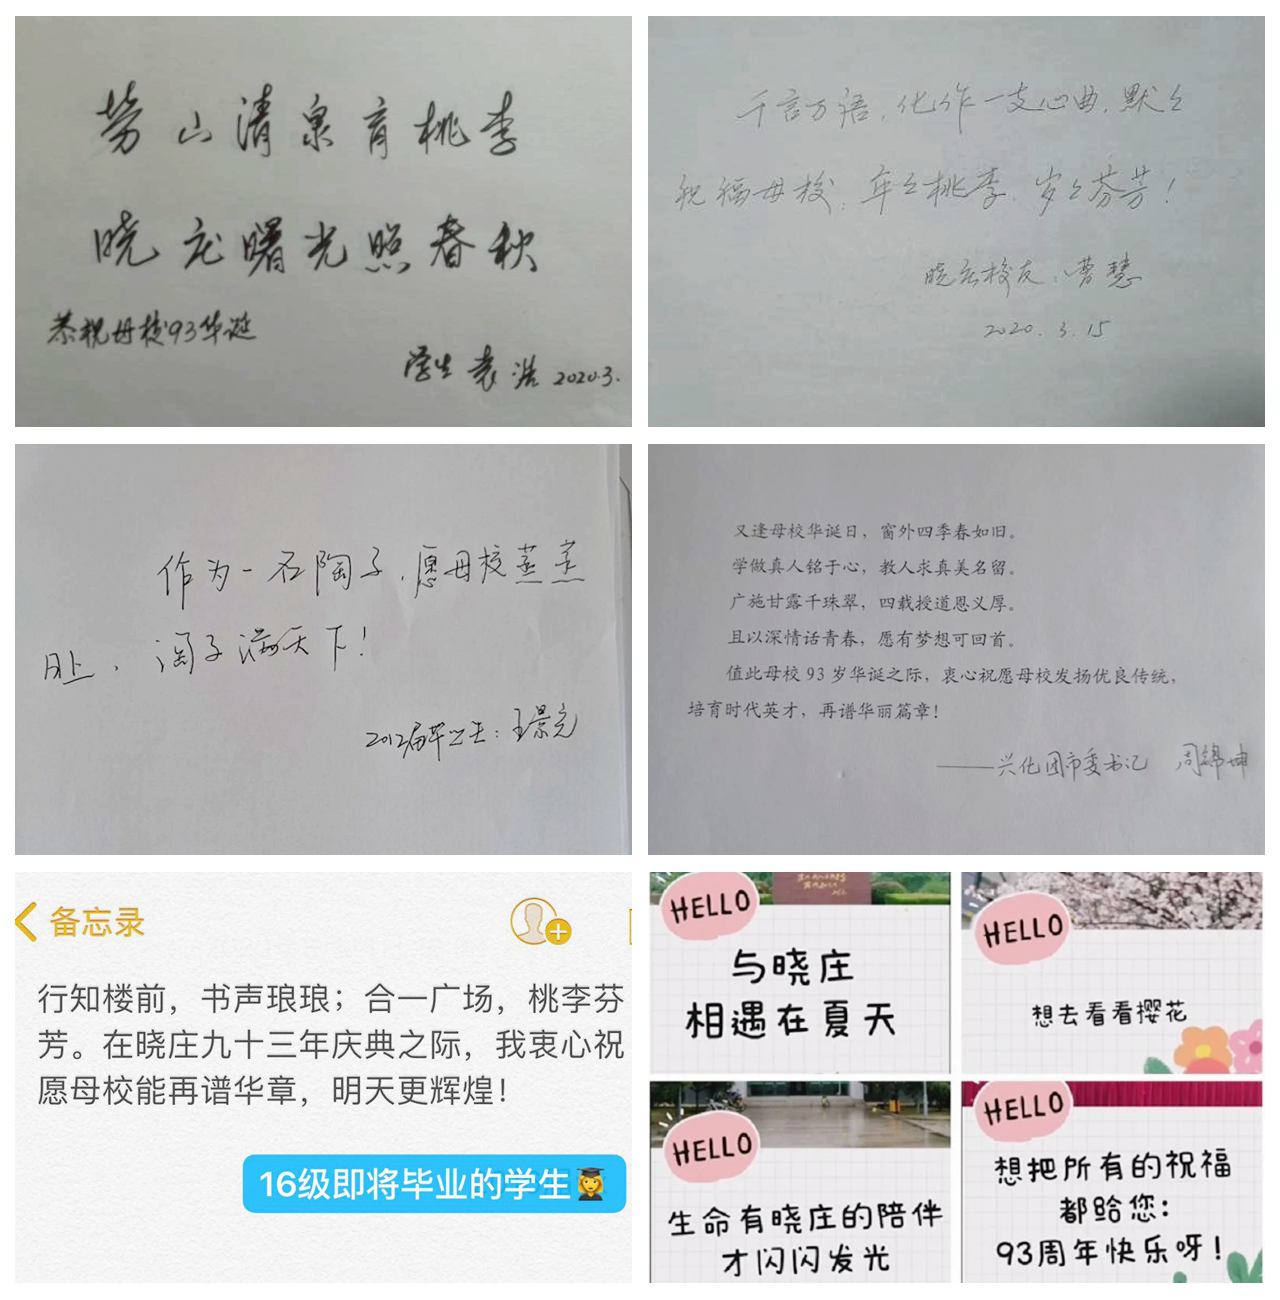 劳山清泉育桃李
晓庄曙光照春秋
恭祝母校93华诞
学生 袁浩 2020.3.
千言万语,化作一支心曲,默々
祝福母校:年々桃李,岁々芬芳!
晓庄校友:曹慧
2020.3.15
作为一名陶子,愿母校蒸蒸
日上,陶子满天下!
2012届毕业生:王景元
又逢母校华诞日,窗外四季春如旧。
学做真人铭于心,教人求真美名留。
广施甘露千珠翠,四载授道恩义厚。
且以深情话青春,愿有梦想可回首。
值此母校93岁华诞之际,衷心祝愿母校发扬优良传统,
培育时代英才,再谱华丽篇章!
——兴化团市委书记 周锦坤
备忘录
行知楼前,书声琅琅;合一广场,桃李芬
芳。在晓庄九十三年庆典之际,我衷心祝
愿母校能再谱华章,明天更辉煌!
16级即将毕业的学生
HELLO
与晓庄
相遇在夏天
HELLO
想去看看樱花
HELLO
生命有晓庄的陪伴
才闪闪发光
HELLO
想把所有的祝福
都给您:
93周年快乐呀!